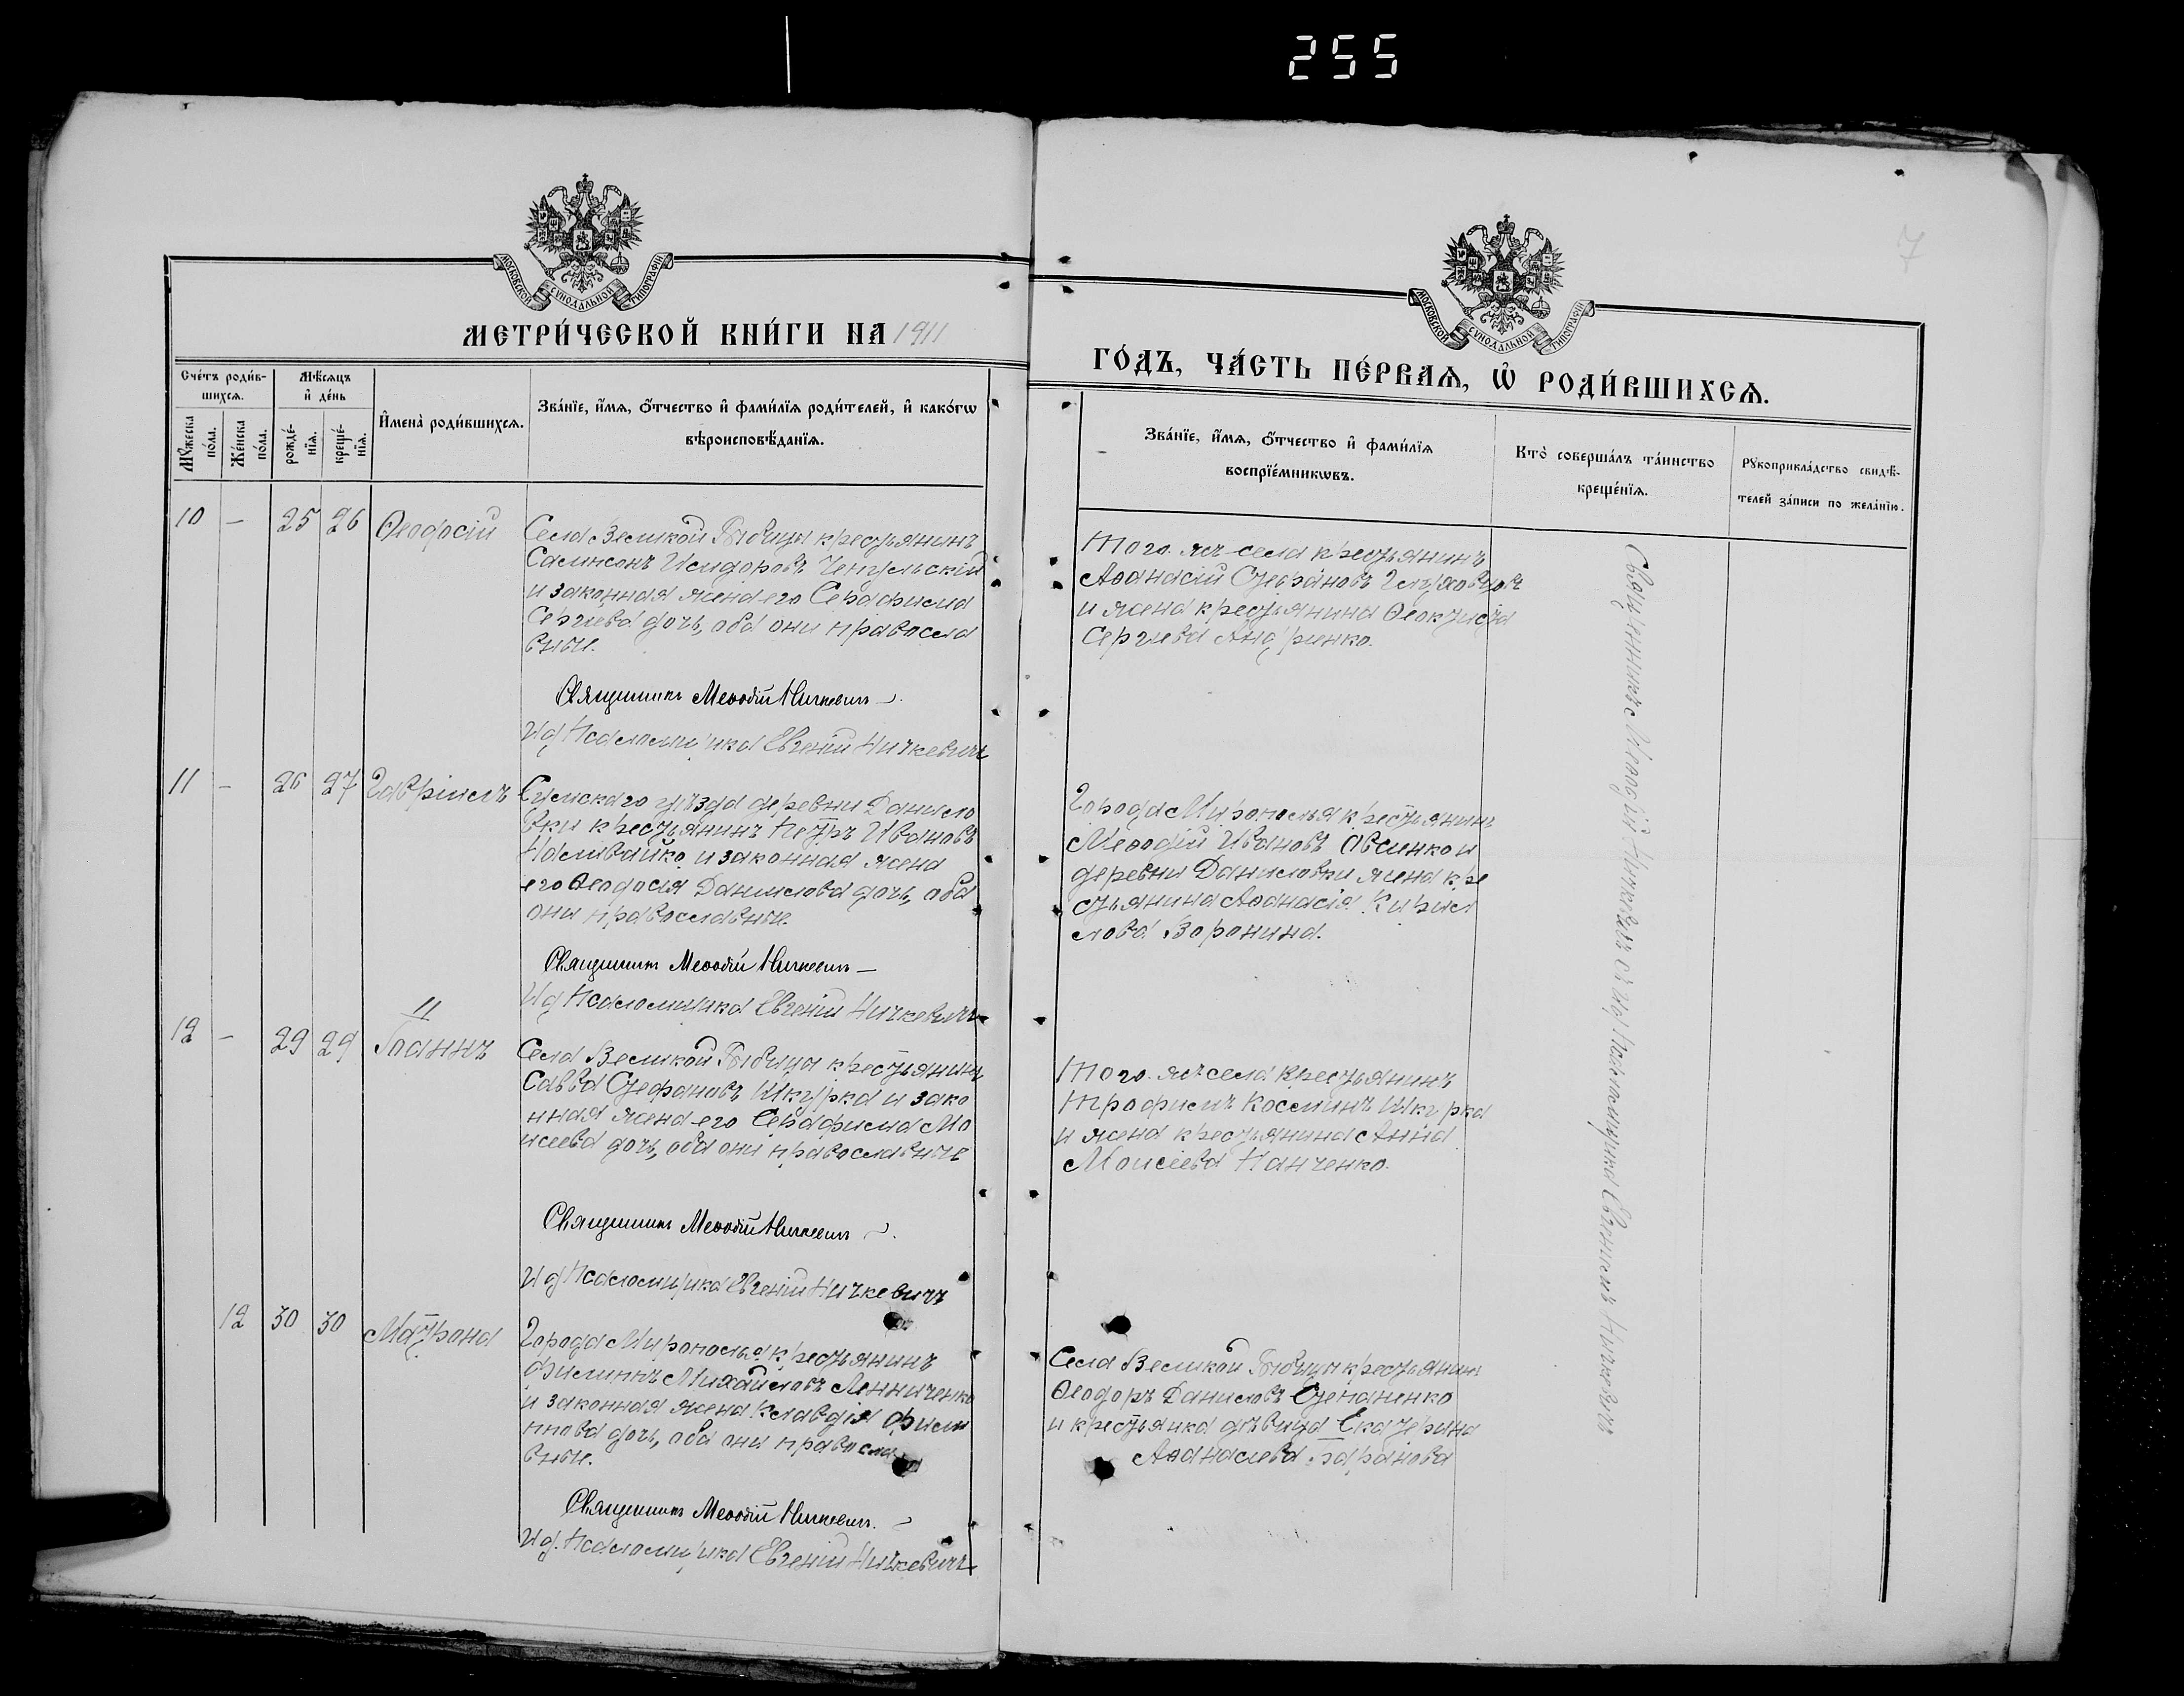 255
7
МОСКОВСКОЙ СУНОДАЛЬНОЙ ТИПОГРАФІИ
МОСКОВСКОЙ СУНОДАЛЬНОЙ ТИПОГРАФІИ
МЕТРИ́ЧЕСКОЙ КНИ́ГИ НА 1911
ГО́ДЪ, ЧА́СТЬ ПЕ́РВАѦ, Ѡ҆ РОДИ́ВШИХСѦ.
Сче́тъ роди́в-
шихсѧ.
Мꙋ́жеска
по́ла.
Же́нска
по́ла.
Мѣ́сѧцъ
и҆ де́нь
рожде́-
нїѧ.
креще́-
нїѧ.
И҆мена̀ роди́вшихсѧ.
Зва́нїе, и҆́мѧ, ѻ҆́тчество и҆ фами́лїѧ роди́телей, и҆ како́гѡ
вѣроисповѣ́данїѧ.
Зва́нїе, и҆́мѧ, ѻ҆́тчество и҆ фами́лїѧ
воспрїе́мникѡвъ.
Кто̀ соверша́лъ та́инство
креще́нїѧ.
Рꙋкоприкла́дство свидѣ́-
телей за́писи по жела́нїю.
10 – 25 26 Ѳеодосій
Села Великой Рыбицы крестьянинъ
Сампсонъ Исидоровъ
и законная жена его Серафима
Сергіева дочь, оба они правосла
вные.
Священникъ Меѳодій Ничкевичъ
Ид Псаломщика Евгеній Ничкевичъ
Того-же села крестьянинъ
Аѳанасій Стефановъ
и жена крестьянина Ѳеоктиста
Сергіева Андріенко.
11 – 26 27 Гавріилъ
Сумскаго уѣзда деревни Данило
вки крестьянинъ Петръ Ивановъ
Наливайко и законная жена
его Ѳеодосія Данилова дочь, оба
они православные.
Священникъ Меѳодій Ничкевичъ
Ид Псаломщика Евгеній Ничкевичъ
Города Мирополья крестьянинъ
Меѳодій Ивановъ Овсіенко и
деревни Даниловки жена кре
стьянина Аѳанасія Кирил
лова Воронина.
12 – 29 29 Іоаннъ
11
Села Великой Рыбицы крестьянинъ
Савва Стефановъ Шкурка и зако
нная жена его Серафима Мо
исеева дочь, оба они православные
Священникъ Меѳодій Ничкевичъ
Ид Псаломщика Евгеній Ничкевичъ
Того-же села крестьянинъ
Трофимъ Косминъ Шкурка
и жена крестьянина Анна
Моисеева Панченко.
12 30 30 Матрона
Города Мирополья крестьянинъ
Филиппъ Михайловъ Линниченко
и законная жена Клавдія Фили
ппова дочь, оба они правосла
вные.
Священникъ Меѳодій Ничкевичъ.
Ид. Псаломщика Евгеній Ничкевичъ
Села Великой Рыбицы крестьянинъ
Ѳеодоръ Даниловъ Степаненко
и крестьянка дѣвица Екатерина
Аѳанасіева Баранова
Священникъ Меѳодій Ничкевичъ съ Ид Псаломщика Евгеніемъ Ничкевичъ